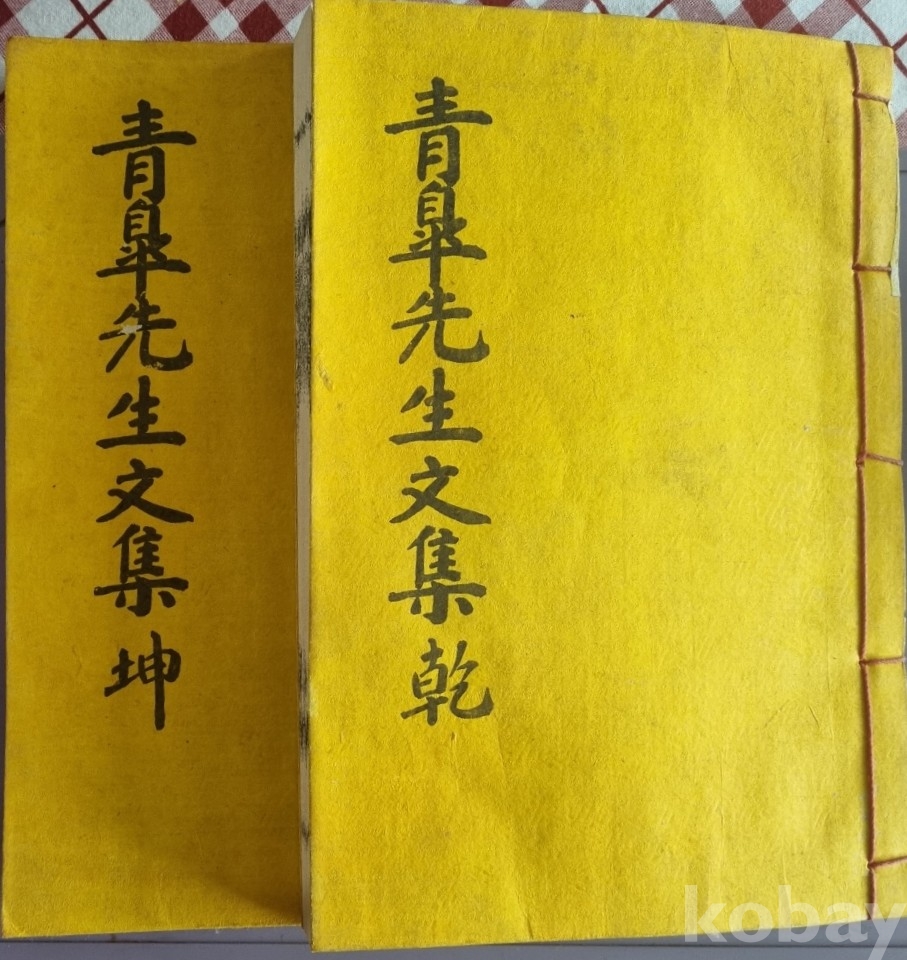 青皐先生文集 乾
青皐先生文集 坤
kobay